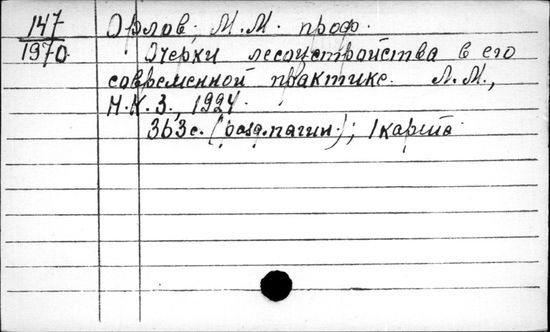 147
1970
Орлов, М.М. проф.
Очерки лесоустройства в его
современной практике. Л.М.,
Н.К.З., 1924.
363с. (разд.пагин.); 1карта